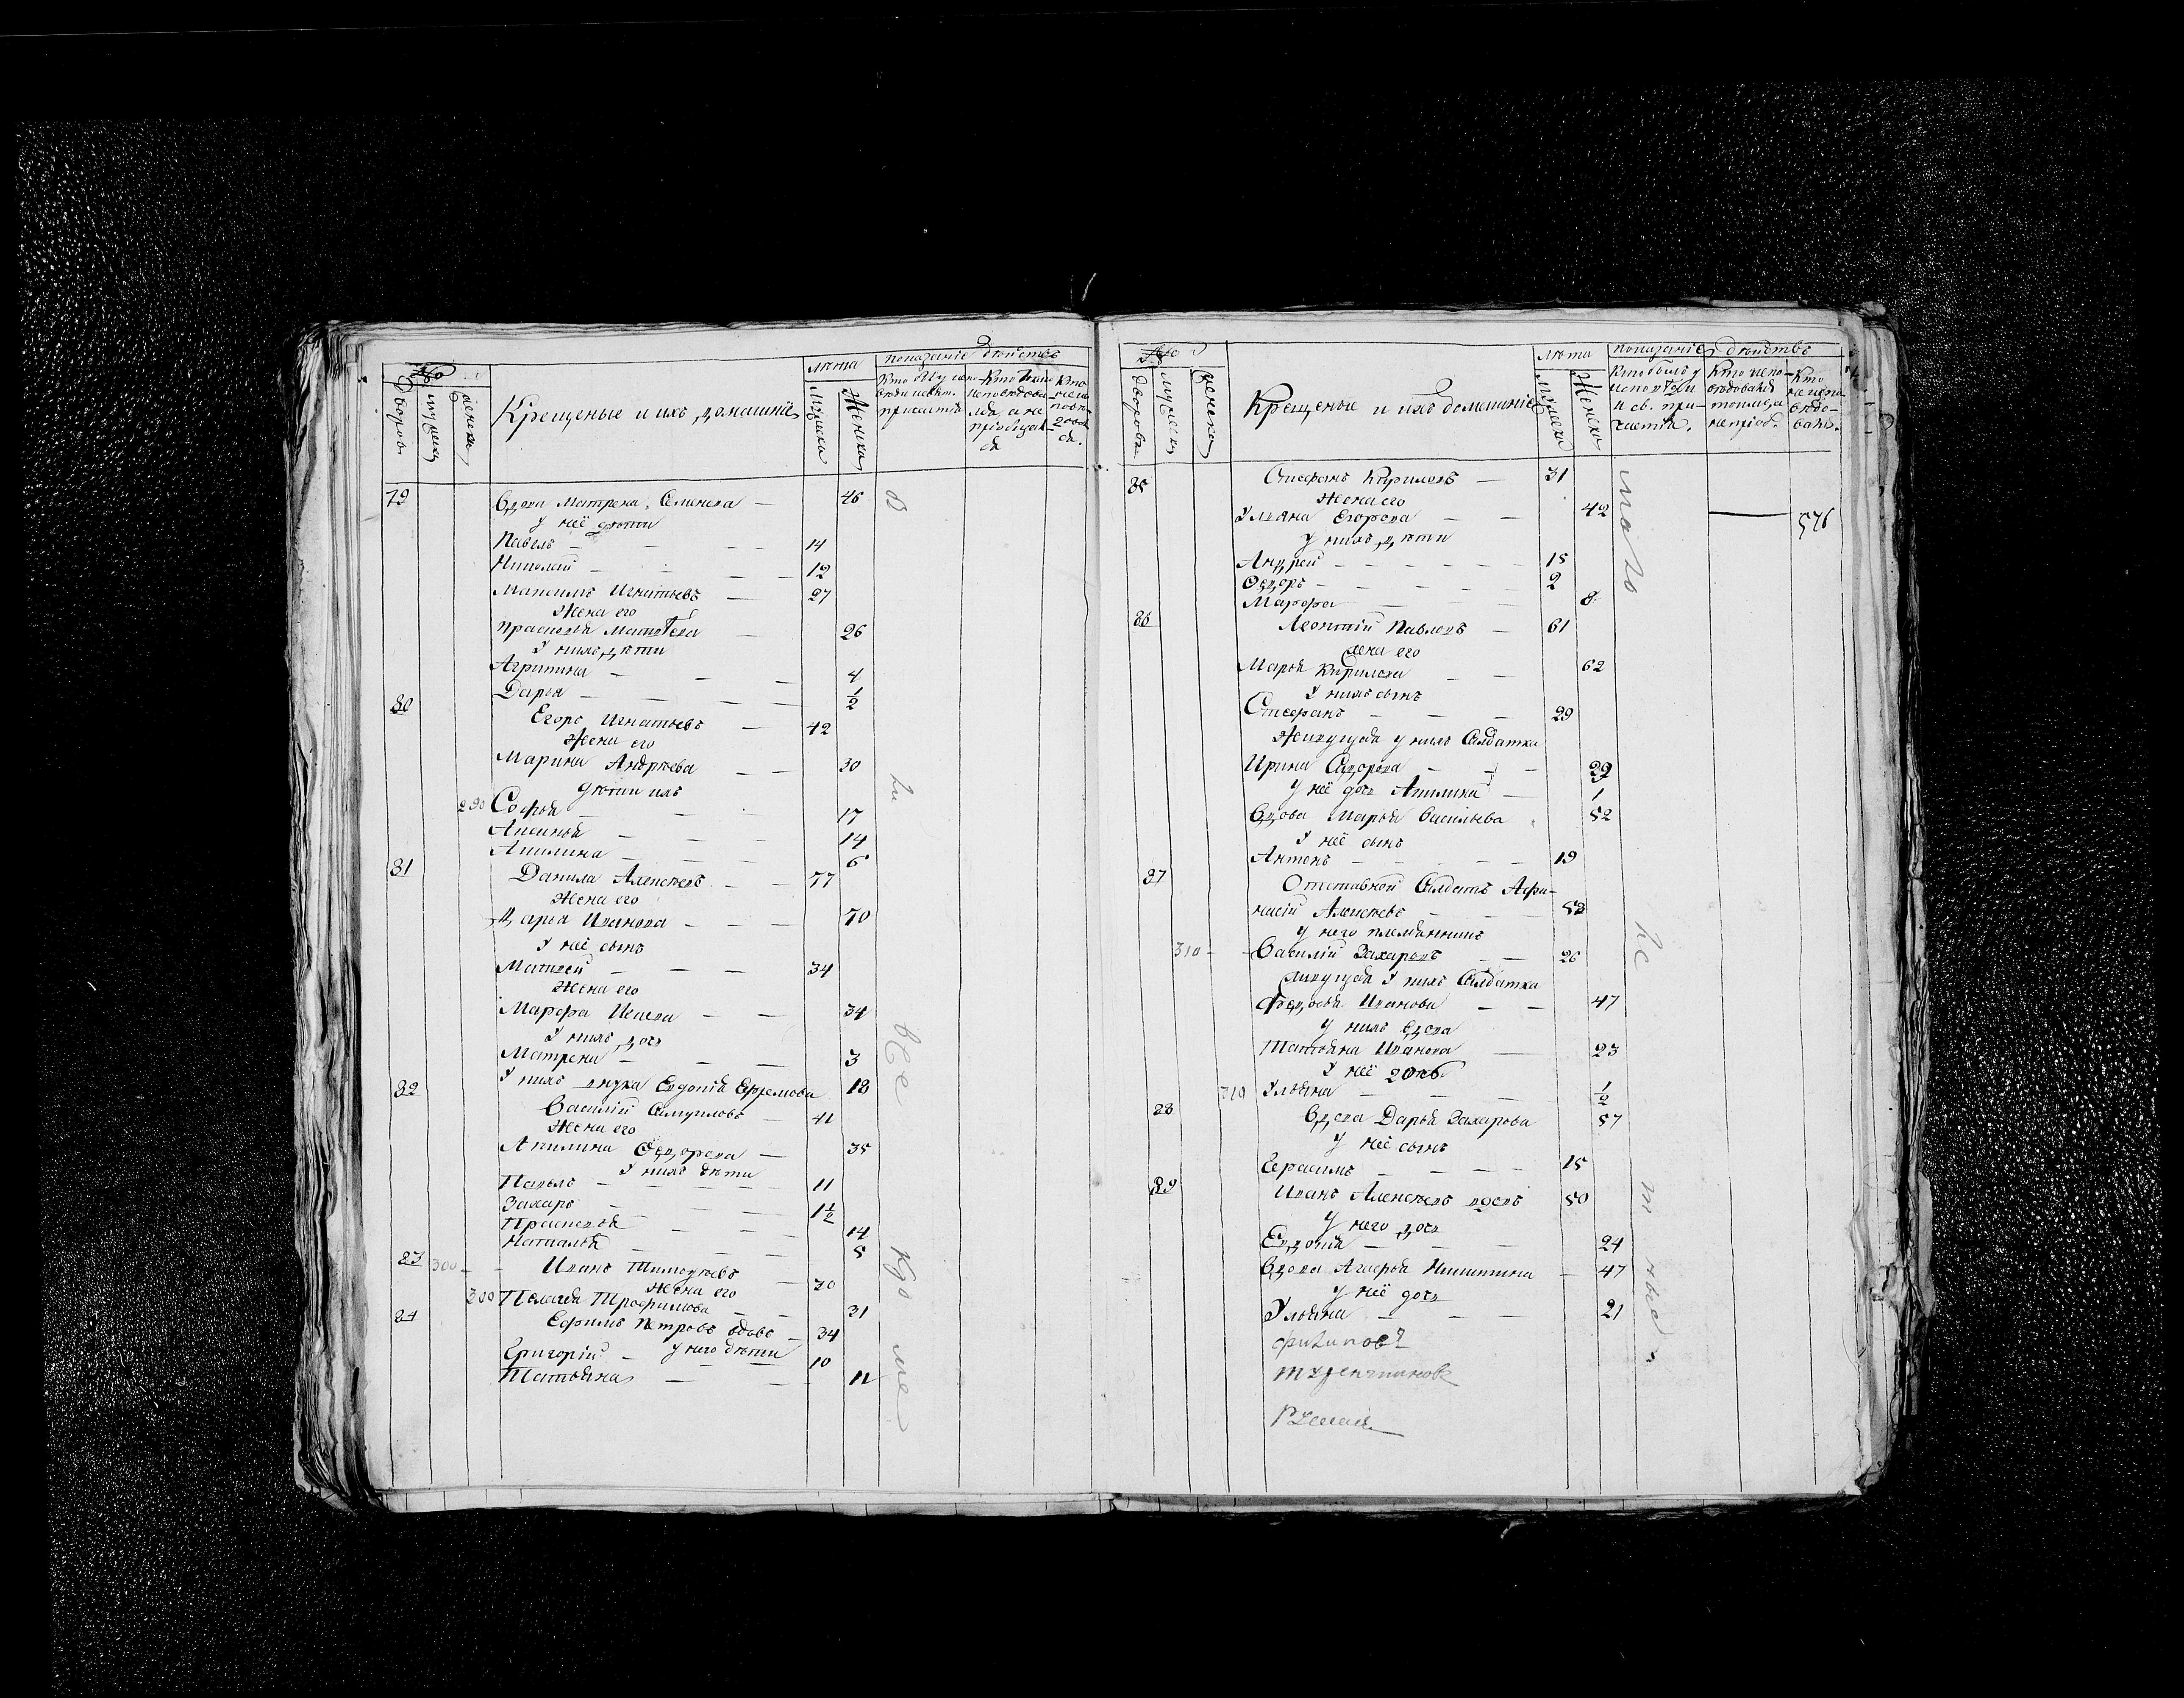 №
Дворовъ
мужеска
женска
Крещеные и ихъ домашніе
лѣта
Мужеска
Женска
показаніе дѣйствъ
Кто былъ у исповѣди и св. причастія
Кто токмо исповѣдовался, а не пріобщался
Кто не исповѣдовался.
79 Вдова Матрена Семенова — 46
У неё дѣти
Павелъ — 14
Николай — 12
Максимъ Игнатьевъ — 27
Жена его
Прасковья Матвѣева — 26
У нихъ дѣти
Агрипина — 4
Дарья — 1/2
80 Егоръ Игнатьевъ — 42
Жена его
Марина Андрѣева — 30
дѣти ихъ
290 Софья — 17
Аксинья — 14
Акилина — 6
81 Данила Алексѣевъ — 77
Жена его
Дарья Иванова — 70
У неё сынъ
Матвей — 34
Жена его
Марфа Исаева — 34
У нихъ дочь
Матрена — 3
У нихъ внука Евдокія Ефремова 18
82 Василій Самуиловъ — 41
Жена его
Акилина Ѳедорова — 35
У нихъ дѣти
Павелъ — 11
Захаръ — 1 1/2
Прасковья — 14
Наталья — 8
83 300 Иванъ Тимофѣевъ — 30
Жена его
300 Пелагея Трофимова — 31
84 Ефимъ Петровъ вдовъ — 34
У него дѣти
Григорій — 10
Татьяна — 11
№
дворовъ
мужеска
женска
Крещеные и ихъ домашніе
лѣта
Мужеска
Женска
показаніе дѣйствъ
Кто былъ у исповѣди и св. причастія.
Кто исповѣдовался токмо, а не пріоб.
Кто не исповѣдовался.
85 Стефанъ Кириловъ — 31
Жена его
Ульяна Егорова — 42
576
У нихъ дѣти
Андрей — 15
Ѳедоръ — 2
Марфа — 8
86 Леонтій Павловъ — 61
Жена его
Марья Кирилова — 62
У нихъ сынъ
Стефанъ — 29
Живущая у нихъ Салдатка
Ирина Сидорова — 29
У неё дочь Акилина — 1
Вдова Марья Васильева 52
У неё сынъ
Антонъ — 19
87 Отставной Салдатъ Афа-
насій Алексѣевъ — 52
У него племянникъ
310 Василій Захаровъ — 26
Живущая У нихъ Салдатка
Федосья Иванова — 47
У нихъ вдова
Татьяна Иванова — 23
У неё дочь
310 Ульяна — 1/2
88 Вдова Дарья Захарова 57
У неё сынъ
Герасимъ — 15
89 Иванъ Алексѣевъ вдовъ 50
У него дочь
Евдокія — 24
Вдова Агафья Никитина — 47
У неё дочь
Ульяна — 21